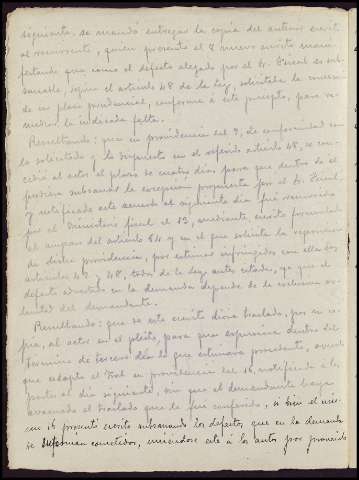 siguiente, se mandó entregar la copia del anterior escrito
al recurrente, quien presentó el 7 nuevo escrito manifes
tando que como el defecto alegado por el Sr. Fiscal es sub-
sanable, según el artículo 48 de la Ley, solicitaba la concesión
de un plazo prudencial, conforme a este precepto, para re-
mediar la indicada falta.
Resultando: que en providencia del 9, de conformidad con
lo solicitado y lo dispuesto en el referido artículo 48, se con-
cedió al actor el plazo de cuatro días para que dentro de él
pudiera subsanar la excepción propuesta por el Sr. Fiscal,
y notificado este acuerdo al siguiente día fué recurrido
por el Ministerio fiscal el 13, mediante escrito formulado
al amparo del artículo 64 y en el que solicita la reposición
de dicha providencia, por estimar infringidos con ella los
artículos 47 y 48, todos de la Ley antes citada, ya que el
defecto advertido en la demanda depende de la exclusiva vo-
luntad del demandante.
Resultando: que de este escrito diose traslado, por su co-
pia, al actor en el pleito, para que expusiera dentro del
término de tercero día lo que estimara procedente, acuerdo
que adoptó el Tral en providencia del 16, notificada a las
partes al día siguiente, sin que el demandante haya
evacuado el traslado que le fué conferido, si bien el mis-
mo 16 presentó escrito subsanando los defectos que en la demanda
se suponían cometidos, uniéndose este á los autos por proveído